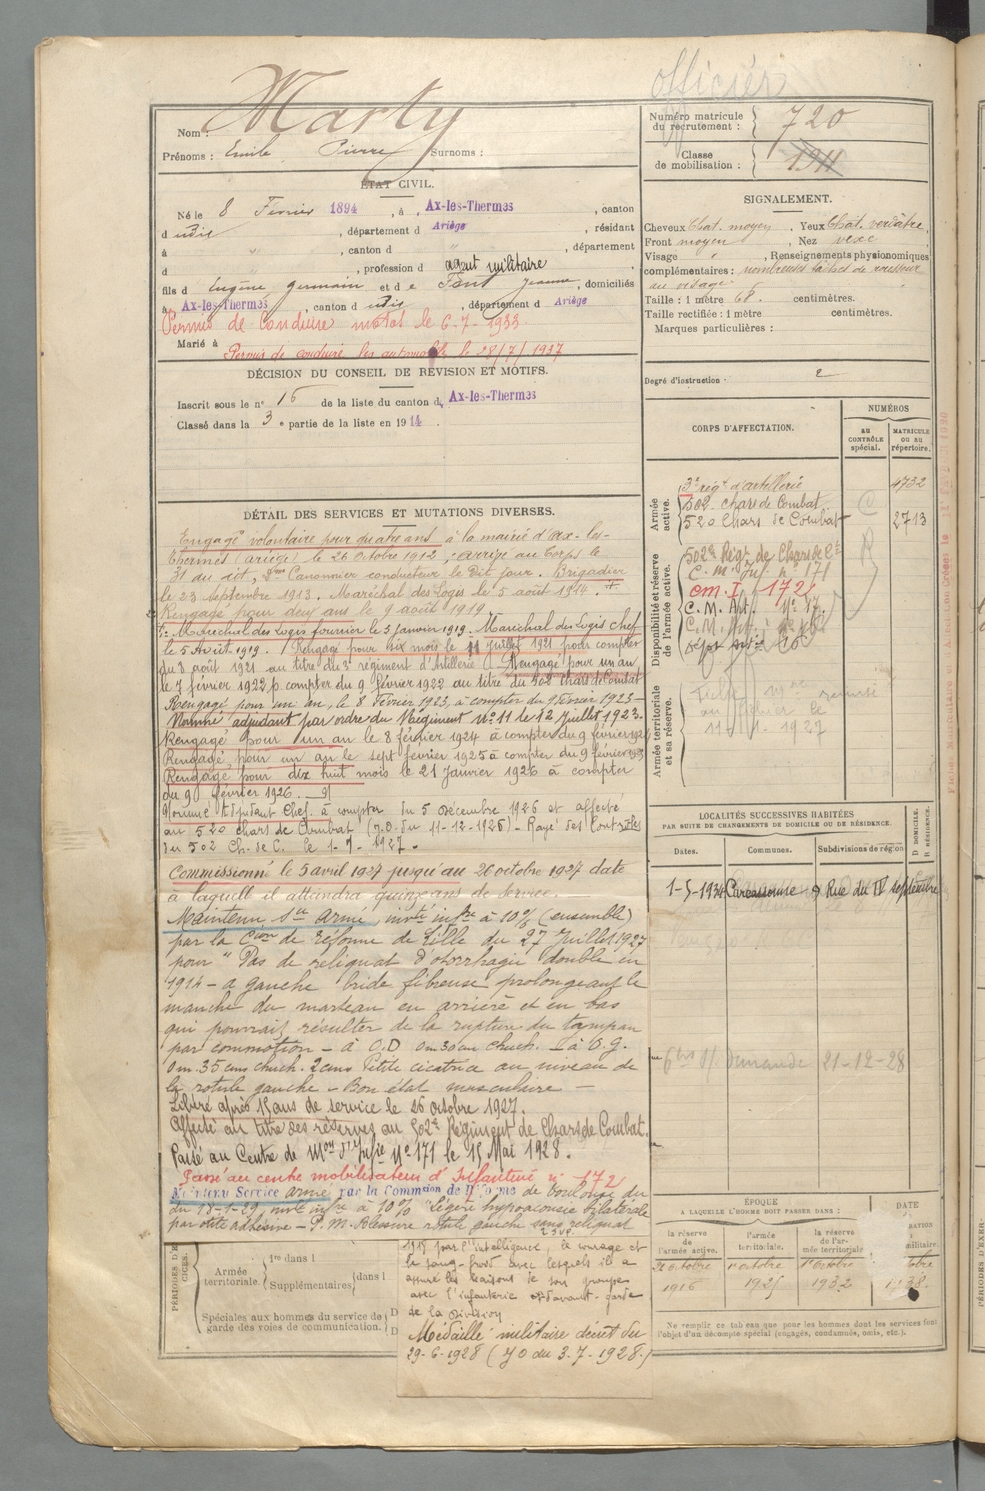 officier
Marty
Nom :
Prénoms : Emile Pierre Surnoms :
ÉTAT CIVIL.
Né le 8 Février 1894, à Ax-les-Thermes, canton
d udit, département d Ariège, résidant
à " , canton d " , département
d " , profession d agent militaire
fils d Eugène Germain et d e Jeanne, domiciliés
à Ax-les-Thermes, canton d udit, département d Ariège
Permis de Conduire motos le 6-7-1933
Marié à
Permis de conduire les automobile le 28/7/1937
DÉCISION DU CONSEIL DE REVISION ET MOTIFS.
Inscrit sous le n° 16 de la liste du canton d Ax-les-Thermes
Classé dans la 3 e partie de la liste en 1914.
DÉTAIL DES SERVICES ET MUTATIONS DIVERSES.
Engagé volontaire pour quatre ans à la mairie d'Ax-les-
Thermes (Ariège) le 26 Octobre 1912, arrivé au Corps le
31 du dit, Canonnier conducteur le dit jour. Brigadier
le 23 septembre 1913. Maréchal des Logis le 5 août 1914. +
Rengagé pour deux ans le 9 août 1919
+ Maréchal des Logis fourrier le 3 janvier 1919. Maréchal des Logis Chef
le 5 Août 1919. Rengagé pour six mois le 11 juillet 1921 pour compter
du 3 août 1921 au titre du 3e régiment d'Artillerie. Rengagé pour un an
le 7 février 1922 p. compter du 9 février 1922 au titre du 502 chars de Combat
Rengagé pour un an, le 8 Février 1923, à compter du 9 Février 1923 -
Nommé adjudant par ordre du Régiment N° 11 le 12 Juillet 1923.
Rengagé pour un an le 8 février 1924 à compter du 9 février 192
Rengagé pour un an le sept février 1925 à compter du 9 février
Rengagé pour dix huit mois le 21 Janvier 1926 à compter
du 9 février 1926.
Nommé Adjudant Chef à compter du 5 Décembre 1926 et affecté
au 520 chars de Combat (J.O. du 11-12-1926) - Rayé des Contrôles
du 502 Ch. de C. le 1-7-1927 -
Commissionné le 5 avril 1927 jusqu'au 26 octobre 1927 date
à laquelle il atteindra quinze ans de service.
Maintenu Sce Armé, invté infre à 10% (ensemble)
par la Cion de réforme de Lille du 27 Juillet 1927
pour " Pas de reliquat d'otorrhagie double en
1914 - a gauche bride fibreuse prolongeant le
manche du marteau en arrière et en bas
qui pourrait résulter de la rupture du tampan
par commotion - à O.D 0m30 au chuch. à O.G.
0m35 chuch. Petite cicatrice au niveau de
la rotule gauche - Bon état musculaire -
Libéré après 15 ans de service le 26 octobre 1927.
Affecté au titre des réserves au 502e Régiment de Chars de Combat.
Passé au Centre de Mon d'Infie N° 171 le 15 Mai 1928.
Passé au centre mobilisateur d'Infanterie n° 172
Maintenu Service armé par la Commsion de Réforme de Toulouse du
du 18-1-29, invté infre à 10% "Légère hypoacousie bilatérale
par otite adhésive - P.M. Blessure rotule gauche sans reliquat
PÉRIODES D'EXERCICES.
Armée territoriale.
1re dans l
Supplémentaires dans l
Spéciales aux hommes du service de garde des voies de communication.
1918 par l'intelligence, le courage et
le sang-froid avec lesquels il a
assuré les liaisons de son groupe
avec l'infanterie et d'avant-garde
de la Division
Médaille militaire décret du
29-6-1928 (JO du 3-7-1928.)
Numéro matricule du recrutement : 720
Classe de mobilisation : 1911
SIGNALEMENT.
Cheveux Chat. moyen. Yeux Chat. verdâtre,
Front moyen, Nez vexe
Visage " , Renseignements physionomiques
complémentaires : nombreuses taches de rousseur
au visage
Taille : 1 mètre 68. centimètres.
Taille rectifiée : 1 mètre centimètres.
Marques particulières :
Degré d'instruction : 2
CORPS D'AFFECTATION.
NUMÉROS
AU CONTRÔLE spécial.
MATRICULE OU AU répertoire.
Armée active.
3e régt d'artillerie 4732
502 chars de Combat
520 Chars de Combat 2713
Disponibilité et réserve de l'armée active.
502e Régt de Chars de Ct
C. M. Inf. n° 171
CM. I 172
C. M. Art. N° 17.
Armée territoriale et sa réserve.
Fiche remise
au fichier le
11-1-1927
LOCALITÉS SUCCESSIVES HABITÉES
PAR SUITE DE CHANGEMENTS DE DOMICILE OU DE RÉSIDENCE.
Dates. Communes. Subdivisions de région
D DOMICILE.
R RÉSIDENCE.
1-5-1934 Carcassonne 9 Rue du IV septembre
demande 21-12-28
ÉPOQUE
A LAQUELLE L'HOMME DOIT PASSER DANS :
la réserve de l'armée active.
l'armée territoriale.
la réserve de l'armée territoriale
DATE
26 octobre 1916
1er octobre 1925
1er octobre 1932
Ne remplir ce tableau que pour les hommes dont les services font
l'objet d'un décompte spécial (engagés, condamnés, omis, etc.).